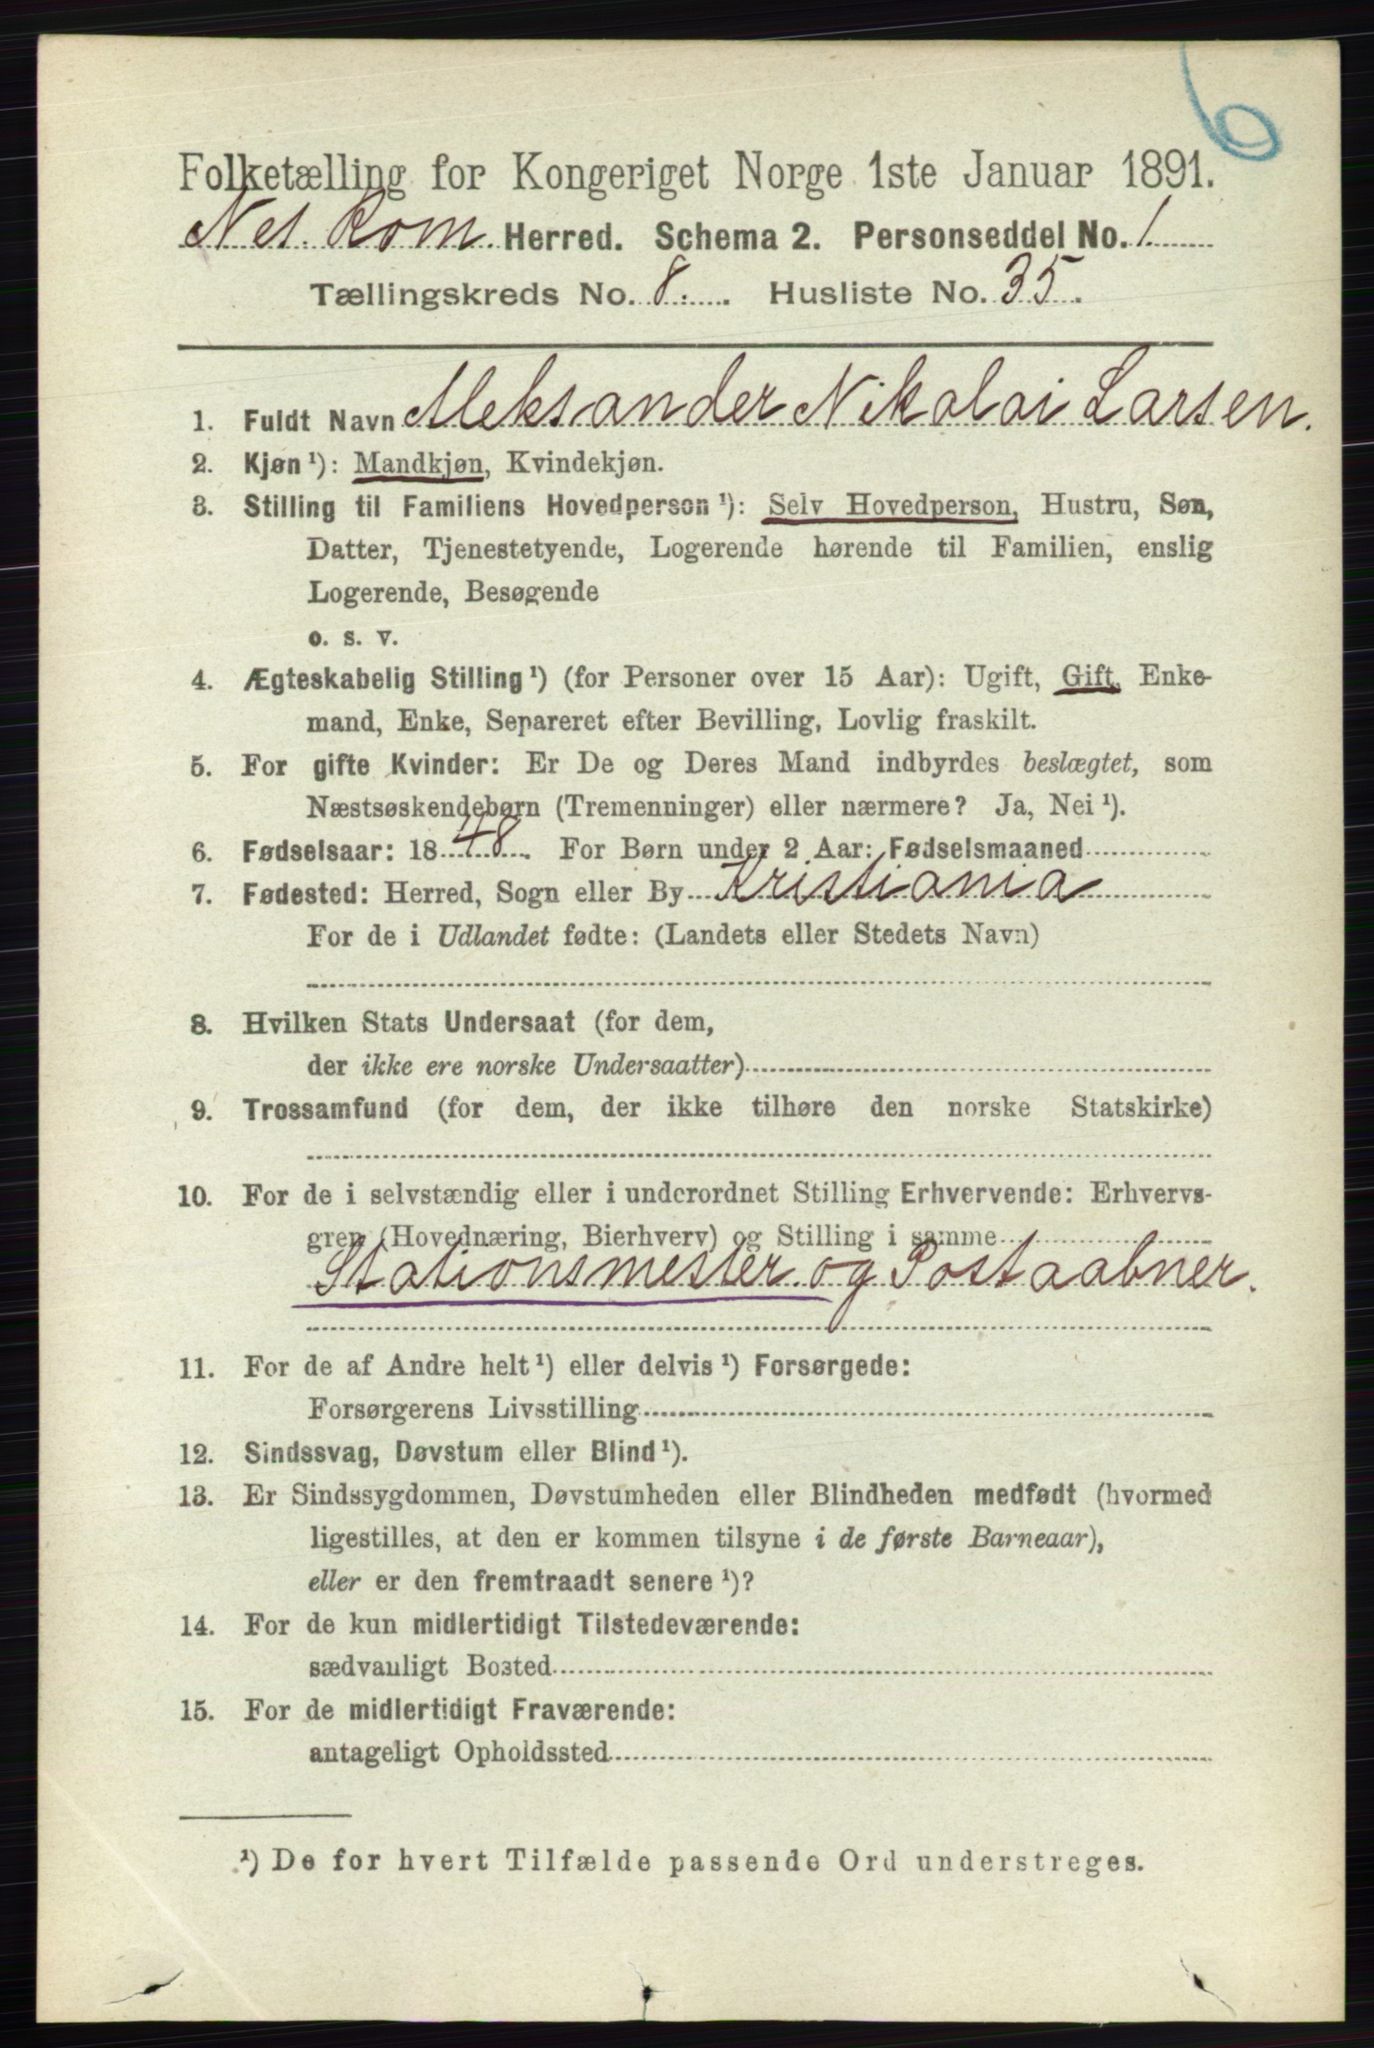 6
Folketælling for Kongeriget Norge 1ste Januar 1891.
Nes. Rom. Herred. Schema 2. Personseddel No. 1
Tællingskreds No. 8. Husliste No. 35.
1. Fuldt Navn Aleksander Nikolai Larsen.
2. Kjøn¹): Mandkjøn, Kvindekjøn.
3. Stilling til Familiens Hovedperson¹): Selv Hovedperson, Hustru, Søn,
Datter, Tjenestetyende, Logerende hørende til Familien, enslig
Logerende, Besøgende
o. s. v.
4. Ægteskabelig Stilling¹) (for Personer over 15 Aar): Ugift, Gift, Enke-
mand, Enke, Separeret efter Bevilling, Lovlig fraskilt.
5. For gifte Kvinder: Er De og Deres Mand indbyrdes beslægtet, som
Næstsøskendebørn (Tremenninger) eller nærmere? Ja, Nei¹).
6. Fødselsaar: 1848. For Børn under 2 Aar: Fødselsmaaned
7. Fødested: Herred, Sogn eller By Kristiania
For de i Udlandet fødte: (Landets eller Stedets Navn)
8. Hvilken Stats Undersaat (for dem,
der ikke ere norske Undersaatter)
9. Trossamfund (for dem, der ikke tilhøre den norske Statskirke)
10. For de i selvstændig eller i underordnet Stilling Erhvervende: Erhvervs-
gren (Hovednæring, Bierhverv) og Stilling i samme
Stationsmester og Postaabner.
11. For de af Andre helt¹) eller delvis¹) Forsørgede:
Forsørgerens Livsstilling
12. Sindssvag, Døvstum eller Blind¹).
13. Er Sindssygdommen, Døvstumheden eller Blindheden medfødt (hvormed
ligestilles, at den er kommen tilsyne i de første Barneaar),
eller er den fremtraadt senere¹)?
14. For de kun midlertidigt Tilstedeværende:
sædvanligt Bosted
15. For de midlertidigt Fraværende:
antageligt Opholdssted
¹) De for hvert Tilfælde passende Ord understreges.